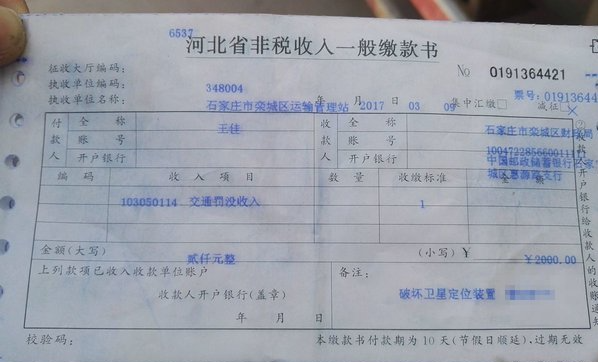 6537
河北省非税收入一般缴款书
征收大厅编码:
№ 0191364421
执收单位编码: 348004
票号:0191364
执收单位名称: 石家庄市栾城区运输管理站 2017 年 03 月 09 日 集中汇缴□ 减征□
付款人 全称 王佳 收款人 全称 石家庄市栾城区财政局
账号 账号
开户银行 开户银行 中国邮政储蓄银行
城区惠源路支行
编码 收入项目 数量 收缴标准 金额
103050114 交通罚没收入 1
金额(大写) 贰仟元整 (小写)¥ ¥2000.00
上列款项已收入收款单位账户 备注:
收款人开户银行(盖章) 破坏卫星定位装置
年 月 日
校验码: 本缴款书付款期为10天(节假日顺延),过期无效
②收款人开户银行给收款人的收账通知